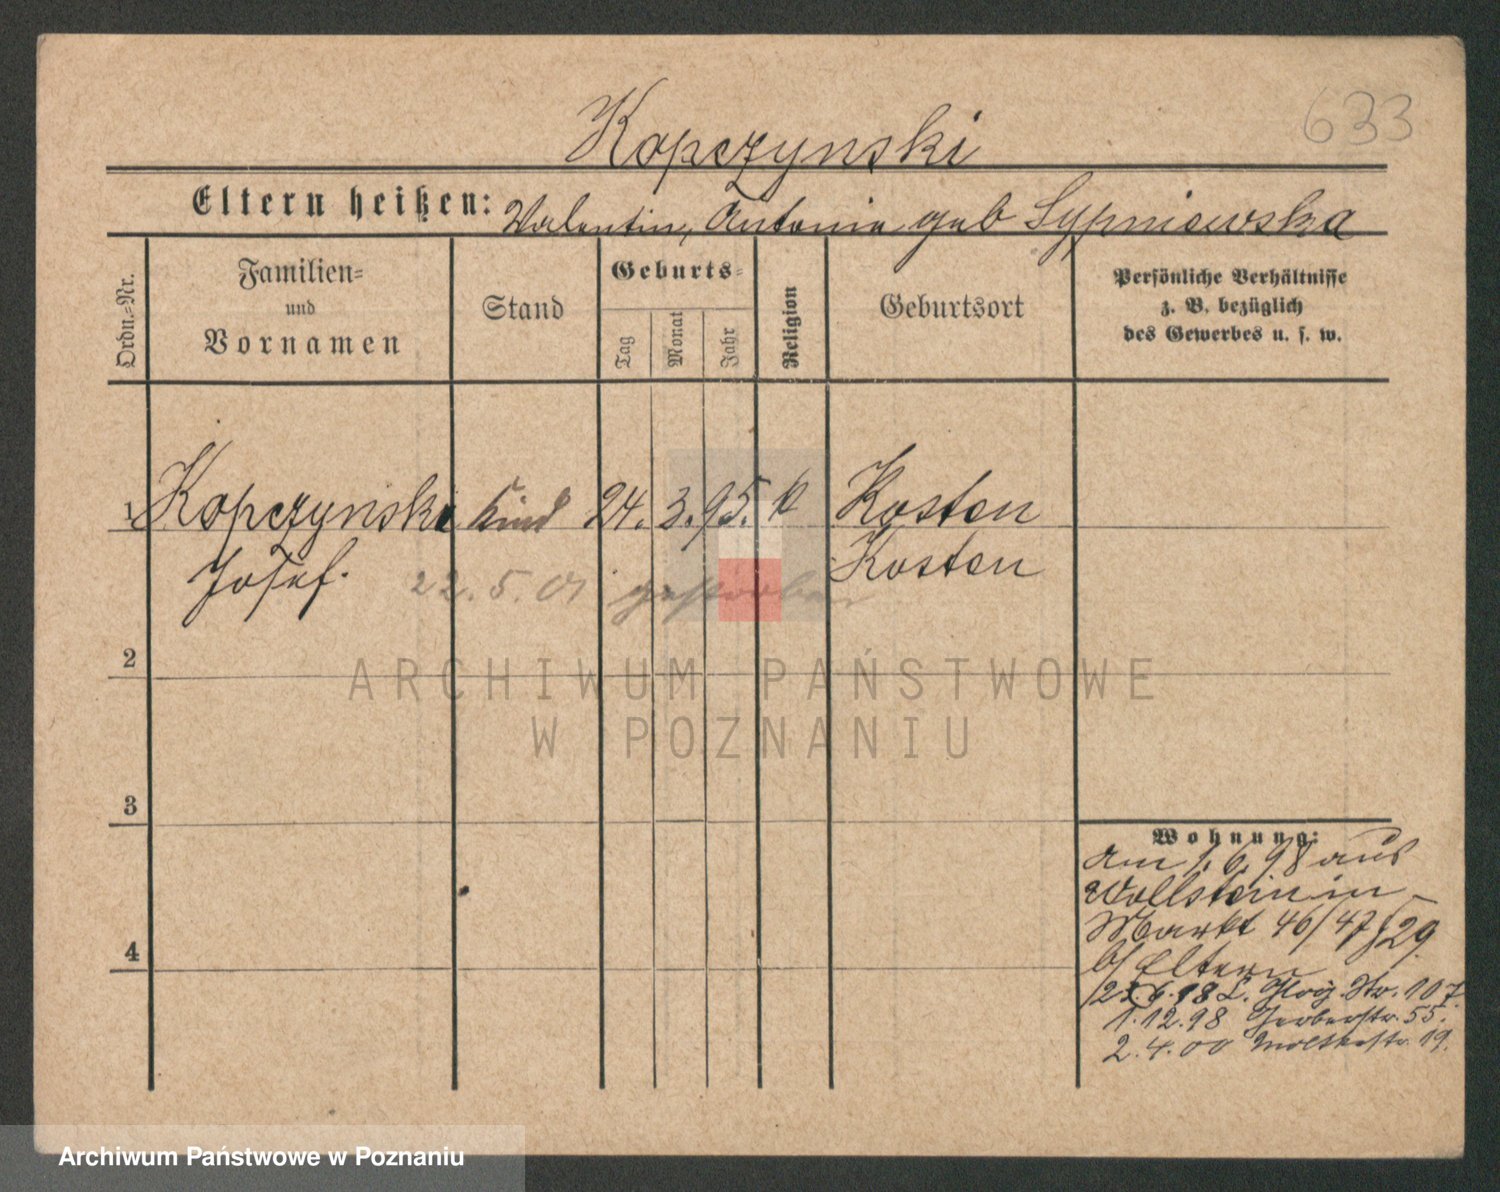 633
Kopczynski
Eltern heißen: Valentin, Antonie geb Sypniewska
Ordn.-Nr.
Familien-
und
Vornamen
Stand
Geburts-
Tag
Monat
Jahr
Religion
Geburtsort
Persönliche Verhältnisse
z. B. bezüglich
des Gewerbes u. s. w.
1 Kopczynski Kind 24. 3. 95. k Kosten
Josef. Kosten
22. 5. 01 gestorben
2
ARCHIWUM PAŃSTWOWE
W POZNANIU
3
4
Wohnung:
am 1. 6. 98 aus
Wollstein in
Markt 46/47 29.
b/ Eltern
6.98 Glog. Str. 107.
1.12.98 Gerberstr. 55.
2. 4. 00 Moltkestr. 19.
Archiwum Państwowe w Poznaniu